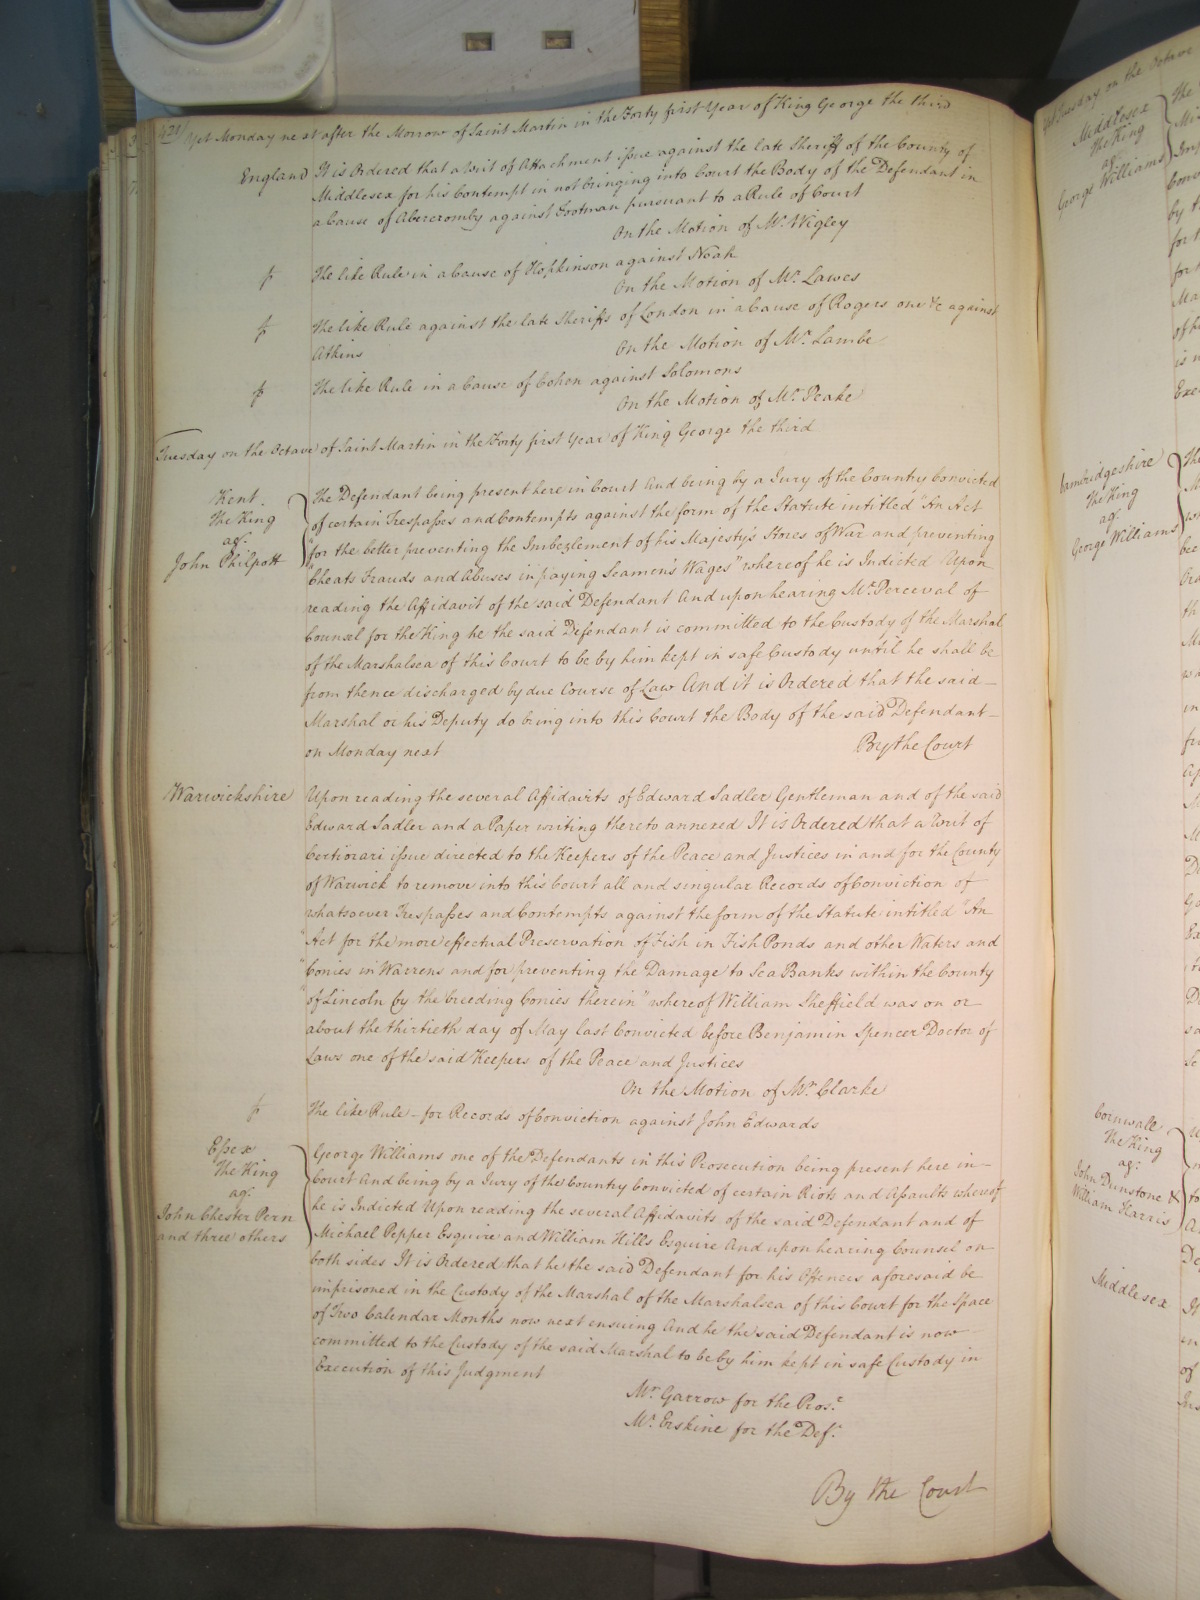 428 Yet Monday next after the Morrow of Saint Martin in the Forty first Year of King George the third
England It is Ordered that a Writ of Attachment issue against the late Sheriff of the County of
Middlesex for his Contempt in not bringing into Court the Body of the Defendant in
a Cause of Abercromby against Footman pursuant to a Rule of Court
On the Motion of Mr. Wigley
The like Rule in a Cause of Hopkinson against Noah
On the Motion of Mr. Lawes
The like Rule against the late Sheriffs of London in a Cause of Rogers one &c against
Atkins
On the Motion of Mr. Lambe
The like Rule in a Cause of Cohen against Solomons
On the Motion of Mr. Peake
Tuesday on the Octave of Saint Martin in the Forty first Year of King George the third
Kent
The King
agt.
John Philpott
The Defendant being present here in Court And being by a Jury of the Country Convicted
of certain Trespasses and Contempts against the form of the Statute intitled "An Act
"for the better preventing the Imbezlement of his Majesty's Stores of War and preventing
"Cheats Frauds and Abuses in paying Seamen's Wages" whereof he is Indicted Upon
reading the Affidavit of the said Defendant And upon hearing Mr. Perceval of
Counsel for the King he the said Defendant is committed to the Custody of the Marshal
of the Marshalsea of this Court to be by him kept in safe Custody until he shall be
from thence discharged by due Course of Law And it is Ordered that the said
Marshal or his Deputy do bring into this Court the Body of the said Defendant
on Monday next By the Court
Warwickshire
Upon reading the several Affidavits of Edward Sadler Gentleman and of the said
Edward Sadler and a Paper writing thereto annexed It is Ordered that a Writ of
Certiorari issue directed to the Keepers of the Peace and Justices in and for the County
of Warwick to remove into this Court all and singular Records of Conviction of
whatsoever Trespasses and Contempts against the form of the Statute intitled "An
"Act for the more effectual Preservation of Fish in Fish Ponds and other Waters and
"Conies in Warrens and for preventing the Damage to Sea Banks within the County
"of Lincoln by the breeding Conies therein" whereof William Sheffield was on or
about the thirtieth day of May last Convicted before Benjamin Spencer Doctor of
Laws one of the said Keepers of the Peace and Justices
On the Motion of Mr. Clarke
The like Rule - for Records of Conviction against John Edwards
Essex
The King
agt.
John Chester Pern
and three others
George Williams one of the Defendants in this Prosecution being present here in
Court And being by a Jury of the Country Convicted of certain Riots and Assaults whereof
he is Indicted Upon reading the several Affidavits of the said Defendant and of
Michael Pepper Esquire and William Hills Esquire And upon hearing Counsel on
both sides It is Ordered that he the said Defendant for his Offences aforesaid be
imprisoned in the Custody of the Marshal of the Marshalsea of this Court for the Space
of Two Calendar Months now next ensuing And he the said Defendant is now
committed to the Custody of the said Marshal to be by him kept in safe Custody in
Execution of this Judgment
Mr. Garrow for the Prosr.
Mr. Erskine for the Deft.
By the Court
Tuesday on the Octave
Middlesex
The King
agt.
George Williams
Cambridgeshire
The King
agt.
George Williams
Cornwall
The King
agt.
John Dunstone &
William Harris
Middlesex